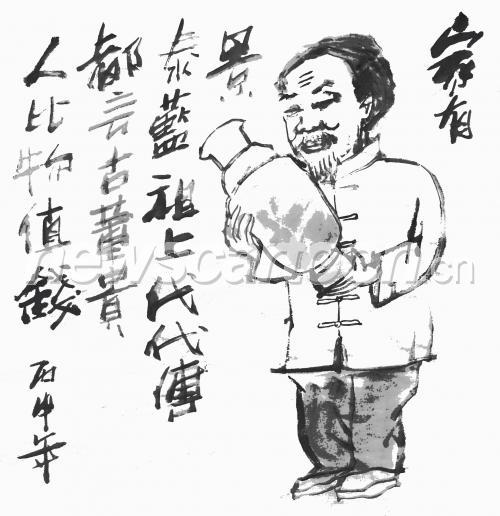 家有
景
泰藍祖上代代傳
都言古董貴
人比物值錢
丙申年
newscartoon.cn